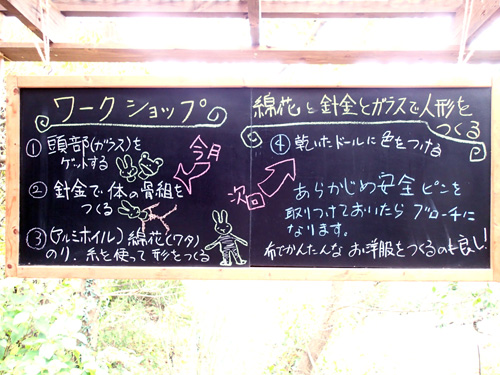 ワークショップ
綿花と針金とガラスで人形を
つくる
① 頭部(ガラス)を
ゲットする
今月
② 針金で体の骨組を
つくる
③ (アルミホイル) 綿花(ワタ)
のり、糸を使って形をつくる
④ 乾いたドールに色をつける
次回
あらかじめ安全ピンを
取りつけておいたらブローチに
なります。
布でかんたんなお洋服をつくるのも良し!